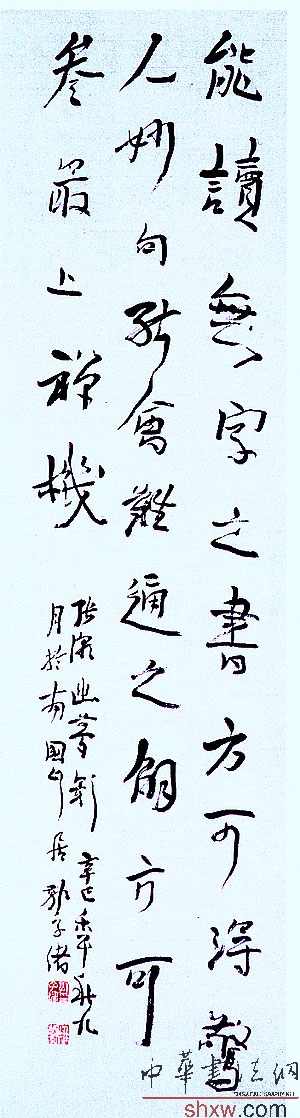 能讀無字之書方可得驚
人妙句能會難通之解方可
參最上禪機
張潮幽夢影 辛巳 秋九
月於南國 居 郭子緒
中華書法網
shxw.com